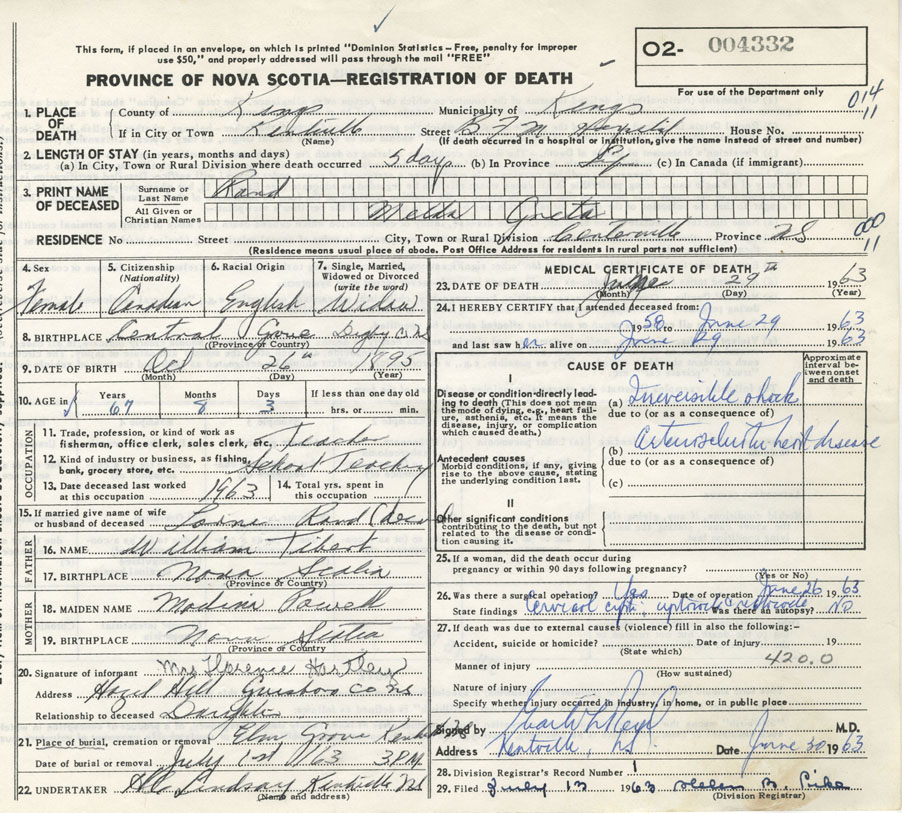 This form, if placed in an envelope, on which is printed "Dominion Statistics – Free, penalty for improper
use $50," and properly addressed will pass through the mail "FREE"
O2- 004332
PROVINCE OF NOVA SCOTIA—REGISTRATION OF DEATH
For use of the Department only
014
11
1. PLACE OF DEATH
County of Kings Municipality of Kings
If in City or Town Kentville Street B F M Hospital House No.
(Name) (If death occurred in a hospital or institution, give the name instead of street and number)
2. LENGTH OF STAY (in years, months and days)
(a) In City, Town or Rural Division where death occurred 5 days (b) In Province (c) In Canada (if immigrant)
3. PRINT NAME OF DECEASED
Surname or Last Name Rand
All Given or Christian Names Melda Greta
000
11
RESIDENCE No Street City, Town or Rural Division Centerville Province NS
(Residence means usual place of abode. Post Office Address for residents in rural parts not sufficient)
4. Sex Female
5. Citizenship (Nationality) Canadian
6. Racial Origin English
7. Single, Married, Widowed or Divorced (write the word) Widow
8. BIRTHPLACE Central Grove Digby Co NS
(Province or Country)
9. DATE OF BIRTH Oct 26th 1895
(Month) (Day) (Year)
10. AGE in Years 67 Months 8 Days 3 If less than one day old hrs. or min.
OCCUPATION
11. Trade, profession or kind of work as fisherman, office clerk, sales clerk, etc. Teacher
12. Kind of industry or business, as fishing, bank, grocery store, etc. School Teaching
13. Date deceased last worked at this occupation 1963
14. Total yrs. spent in this occupation
15. If married give name of wife or husband of deceased Lorne Rand
FATHER
16. NAME William Tibert
17. BIRTHPLACE Nova Scotia
(Province or Country)
MOTHER
18. MAIDEN NAME Powell
19. BIRTHPLACE Nova Scotia
(Province or Country
20. Signature of informant Mrs Florence Hartley
Address Hazel Hill Guysboro Co NS
Relationship to deceased Daughter
21. Place of burial, cremation or removal Elm Grove Kentville
Date of burial or removal July 1st 1963 3 PM
22. UNDERTAKER Lindsay Kentville NS
(Name and address)
MEDICAL CERTIFICATE OF DEATH
23. DATE OF DEATH June 29th 1963
(Month) (Day) (Year)
24. I HEREBY CERTIFY that I attended deceased from:
1958 to June 29 1963
and last saw her alive on June 29 1963
CAUSE OF DEATH
Approximate interval between onset and death
I
Disease or condition directly leading to death (This does not mean the mode of dying, e.g., heart failure, asthenia, etc. It means the disease, injury, or complication which caused death.)
(a) Irreversible shock
due to (or as a consequence of)
Antecedent causes
Morbid conditions, if any, giving rise to the above cause, stating the underlying condition last.
(b) arteriosclerotic heart disease
due to (or as a consequence of)
(c)
II
Other significant conditions
contributing to the death, but not related to the disease or condition causing it.
25. If a woman, did the death occur during
pregnancy or within 90 days following pregnancy?
(Yes or No)
26. Was there a surgical operation? Yes Date of operation June 26 1963
State findings Cervical Was there an autopsy? No
27. If death was due to external causes (violence) fill in also the following:-
Accident, suicide or homicide? Date of injury 19
(State which)
Manner of injury 420.0
(How sustained)
Nature of injury
Specify whether injury occurred in industry, in home, or in public place
Signed by M.D.
Address Kentville, NS. Date June 30 1963
28. Division Registrar's Record Number 1
29. Filed July 13 1963 Helen B.
(Division Registrar)